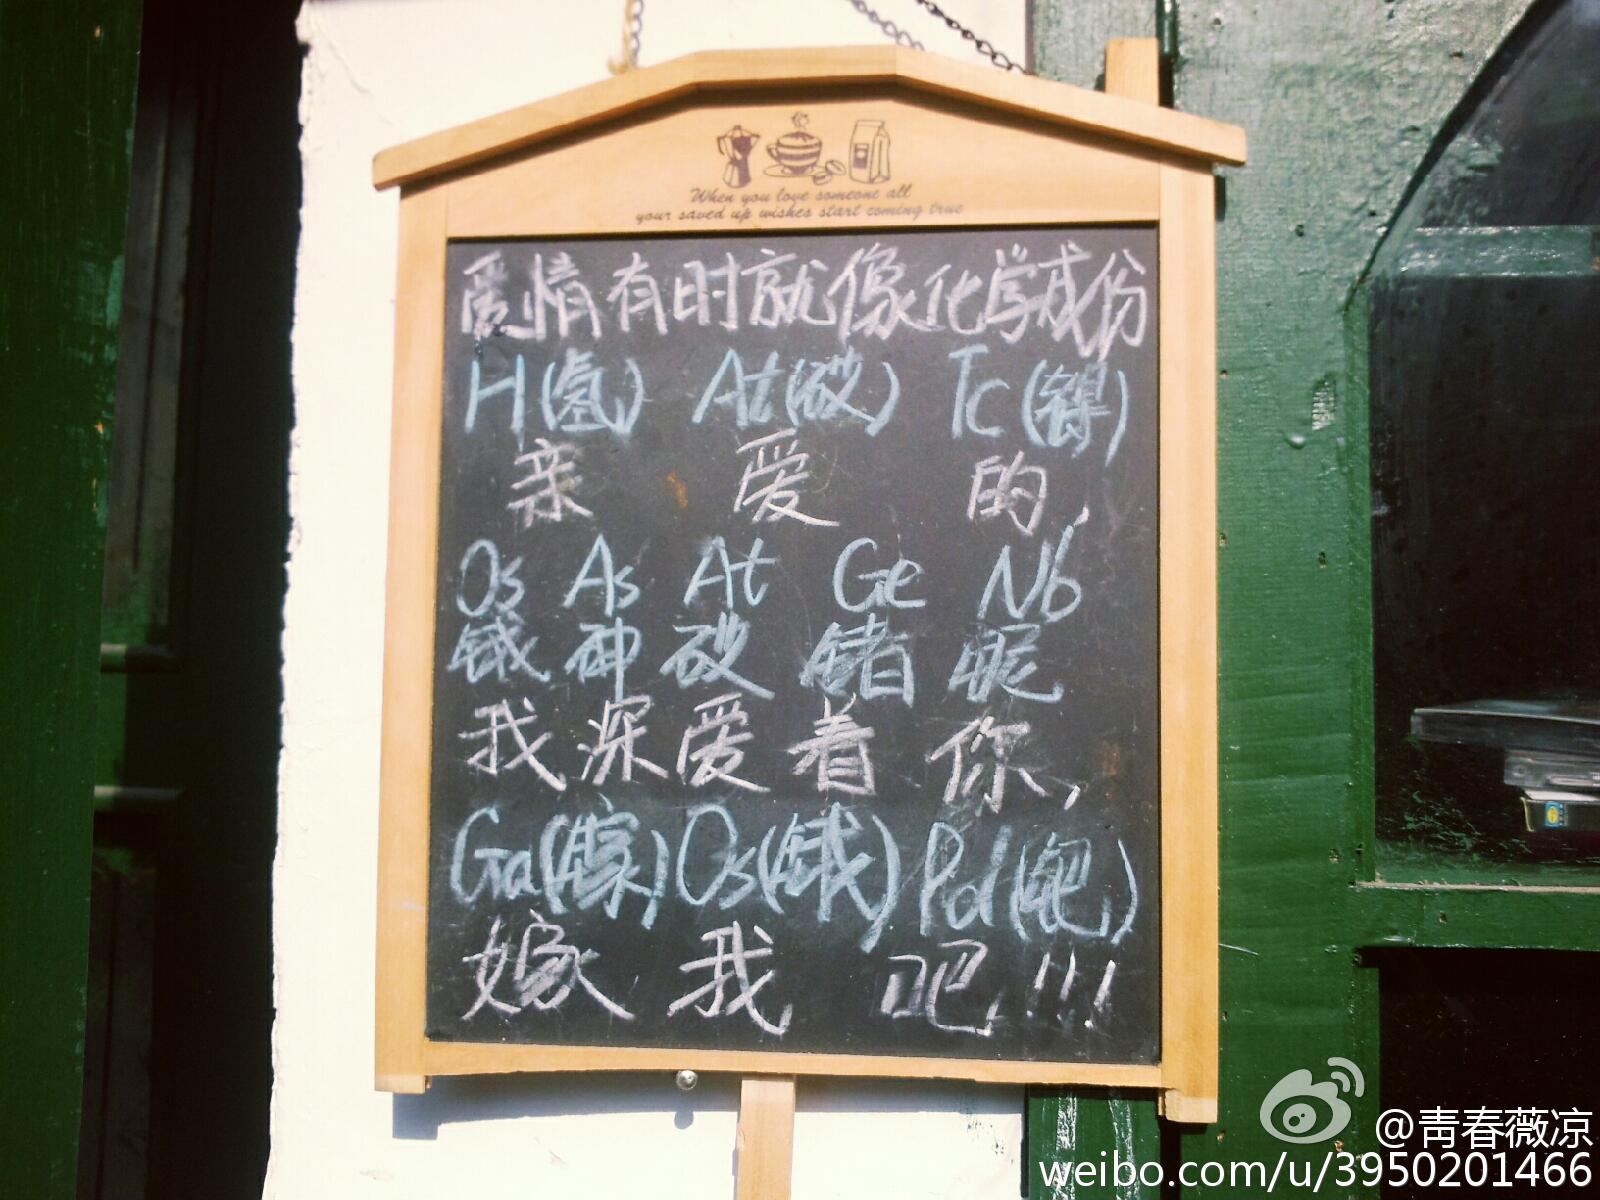 When you love someone all
your saved up wishes start coming true
爱情有时就像化学成份
H(氢) At(砹) Tc(锝)
亲 爱 的,
Os As At Ge Nb
锇 砷 砹 锗 昵
我 深 爱 着 你,
Ga(镓) Os(锇) Pd(钯)
嫁 我 吧!!!
@青春薇凉
weibo.com/u/3950201466